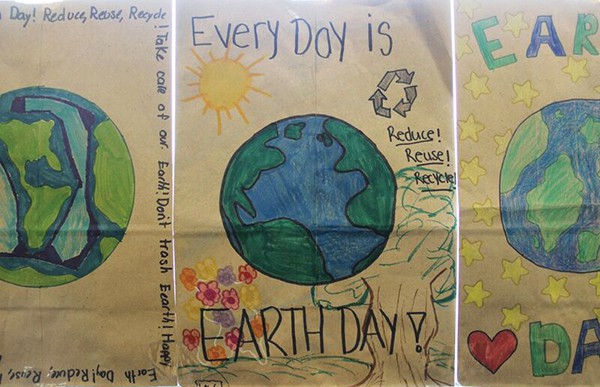 Day! Reduce, Reuse, Recycle
! Take care of our Earth! Don't trash Eearth! Happy
Earth Day! Reduce, Reuse,
Every Day is
Reduce!
Reuse!
Recycle!
EARTH DAY!
EAR
DA